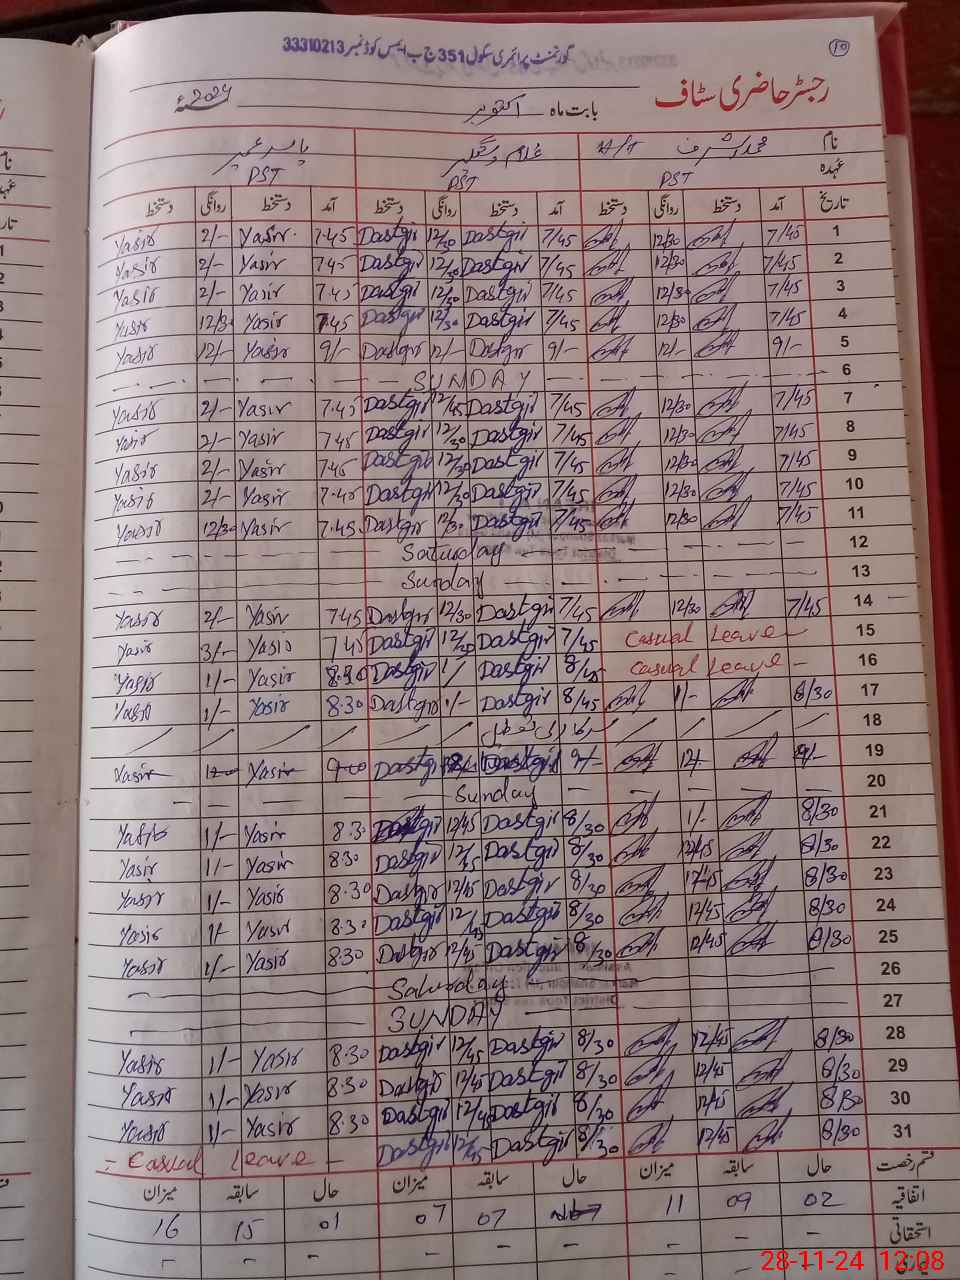 گورنمنٹ پرائمری سکول 351 ج ب ایمس کوڈ نمبر 33310213
10
رجسٹر حاضری سٹاف
بابت ماہ اکتوبر 2024ء
نام محمد اشرف H/T غلام دستگیر یاسر عمیر
عہدہ PST PST PST
تاریخ آمد دستخط روانگی دستخط آمد دستخط روانگی دستخط آمد دستخط روانگی دستخط
1 7/45 12/30 7/45 Dastgir 12/30 Dastgir 7.45 Yasir 2/- Yasir
2 7/45 12/30 7/45 Dastgir 12/30 Dastgir 7.45 Yasir 2/- Yasir
3 7/45 12/30 7/45 Dastgir 12/30 Dastgir 7.45 Yasir 2/- Yasir
4 7/45 12/30 7/45 Dastgir 12/30 Dastgir 7.45 Yasir 12/30 Yasir
5 9/- 12/- 9/- Dastgir 12/- Dastgir 9/- Yasir 12/- Yasir
6 SUNDAY
7 7/45 12/30 7/45 Dastgir 12/45 Dastgir 7.45 Yasir 2/- Yasir
8 7/45 12/30 7/45 Dastgir 12/30 Dastgir 7.45 Yasir 2/- Yasir
9 7/45 12/30 7/45 Dastgir 12/30 Dastgir 7.45 Yasir 2/- Yasir
10 7/45 12/30 7/45 Dastgir 12/30 Dastgir 7.45 Yasir 2/- Yasir
11 7/45 12/30 7/45 Dastgir 12/30 Dastgir 7.45 Yasir 12/30 Yasir
12 Saturday
13 Sunday
14 7/45 12/30 7/45 Dastgir 12/30 Dastgir 7.45 Yasir 2/- Yasir
15 Casual Leave 7/45 Dastgir 12/30 Dastgir 7.45 Yasir 3/- Yasir
16 Casual Leave 8/45 Dastgir 1/ Dastgir 8.30 Yasir 1/- Yasir
17 8/30 1/- 8/45 Dastgir 1/- Dastgir 8.30 Yasir 1/- Yasir
18
19 9/- 12/- 9/- Dastgir Dastgir 9-00 Yasir 12-00 Yasir
20 Sunday
21 8/30 1/- 8/30 Dastgir 12/45 Dastgir 8.30 Yasir 1/- Yasir
22 8/30 12/45 8/30 Dastgir 12/45 Dastgir 8.30 Yasir 1/- Yasir
23 8/30 12/45 8/30 Dastgir 12/45 Dastgir 8.30 Yasir 1/- Yasir
24 8/30 12/45 8/30 Dastgir 12/45 Dastgir 8.30 Yasir 1/- Yasir
25 8/30 12/45 8/30 Dastgir 12/45 Dastgir 8.30 Yasir 1/- Yasir
26 Saturday
27 SUNDAY
28 8/30 12/45 8/30 Dastgir 12/45 Dastgir 8.30 Yasir 1/- Yasir
29 8/30 12/45 8/30 Dastgir 12/45 Dastgir 8.30 Yasir 1/- Yasir
30 8/30 12/45 8/30 Dastgir 12/45 Dastgir 8.30 Yasir 1/- Yasir
31 8/30 12/45 8/30 Dastgir 12/45 Dastgir Casual Leave
قسم رخصت حال سابقہ میزان حال سابقہ میزان حال سابقہ میزان
اتفاقیہ 02 09 11 07 07 01 15 16
استحقاقی - - - - - - - -
28-11-24 12:08